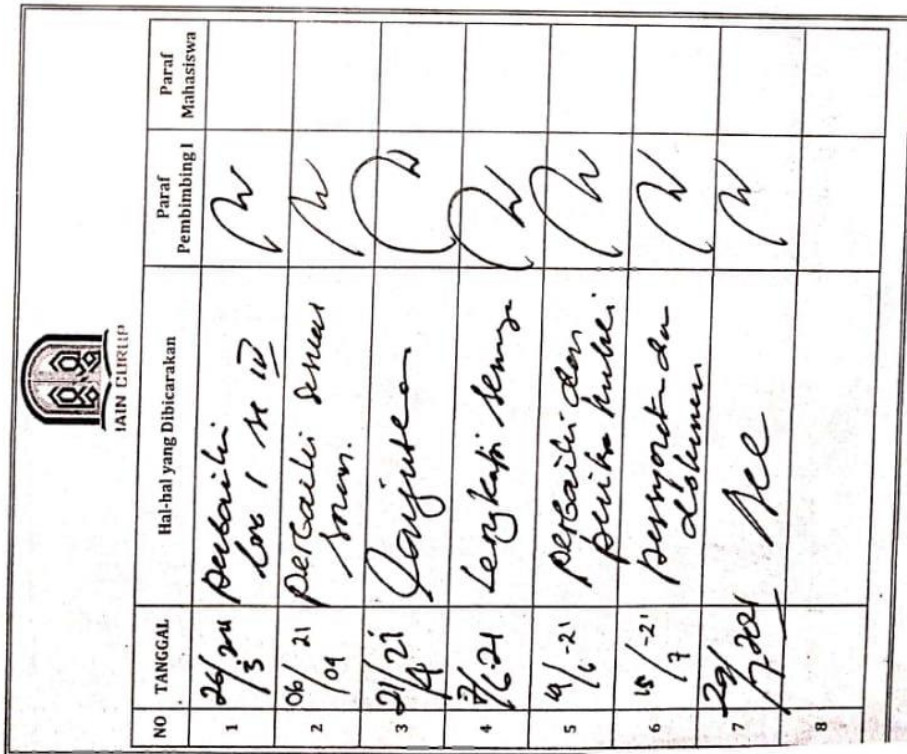 IAIN CURUP
NO TANGGAL Hal-hal yang Dibicarakan Paraf Pembimbing I Paraf Mahasiswa
1 26/3 perbaiki
bab I
2 06/04 21 perbaiki sesuai
saran.
3 21/4 21 Lanjutkan
4 /6-21 Lengkapi semua
5 /6 -21 perbaiki dan
6 15/7 -21
7 29/7 2021 Acc
8